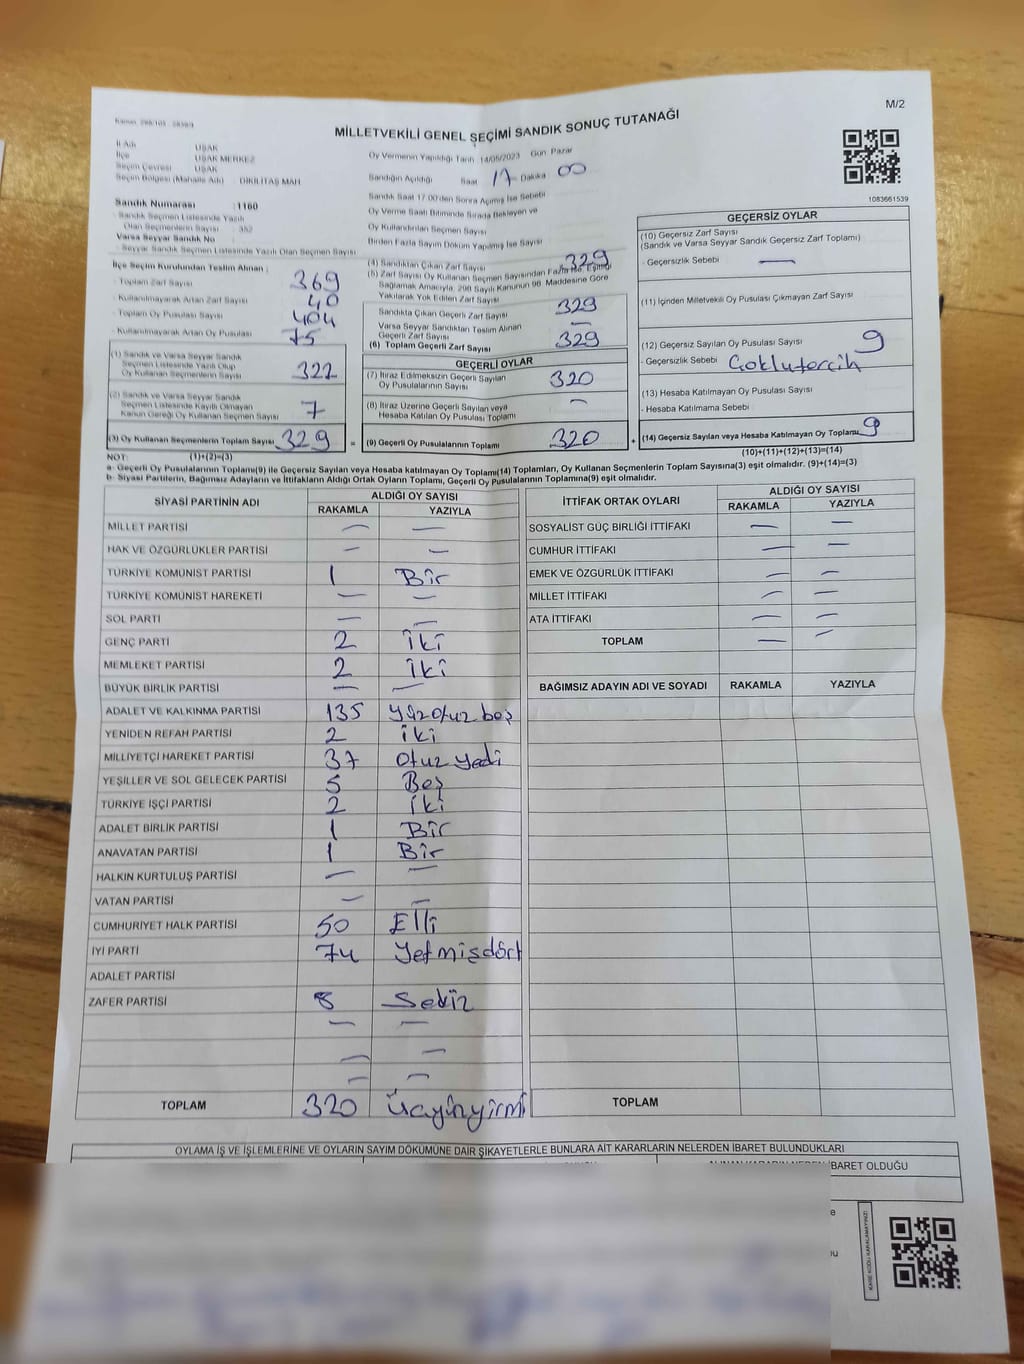 M/2
MİLLETVEKİLİ GENEL SEÇİMİ SANDIK SONUÇ TUTANAĞI
İl Adı UŞAK
İlçe UŞAK MERKEZ
Seçim Çevresi UŞAK
Seçim Bölgesi (Mahalle Adı) : DİKİLİTAŞ MAH
Sandık Numarası : 1160
Sandık Seçmen Listesinde Yazılı
Olan Seçmenlerin Sayısı : 352
Varsa Seyyar Sandık No
Seyyar Sandık Seçmen Listesinde Yazılı Olan Seçmen Sayısı
Oy Vermenin Yapıldığı Tarih 14/05/2023 Gün Pazar
Sandığın Açıldığı Saat 17 Dakika 00
Sandık Saat 17.00'den Sonra Açılmış İse Sebebi
Oy Verme Saati Bitiminde Sırada Bekleyen ve
Oy Kullandırılan Seçmen Sayısı
Birden Fazla Sayım Döküm Yapılmış İse Sayısı
1083661539
İlçe Seçim Kurulundan Teslim Alınan ;
- Toplam Zarf Sayısı 369
- Kullanılmayarak Artan Zarf Sayısı 40
- Toplam Oy Pusulası Sayısı 404
- Kullanılmayarak Artan Oy Pusulası 75
(1) Sandık ve Varsa Seyyar Sandık
Seçmen Listesinde Yazılı Olup
Oy Kullanan Seçmenlerin Sayısı 322
(2) Sandık ve Varsa Seyyar Sandık
Seçmen Listesinde Kayıtlı Olmayan
Kanun Gereği Oy Kullanan Seçmen Sayısı 7
(3) Oy Kullanan Seçmenlerin Toplam Sayısı 329 =
(4) Sandıktan Çıkan Zarf Sayısı 329
(5) Zarf Sayısı Oy Kullanan Seçmen Sayısından Fazla İse, Eşitliği
Sağlamak Amacıyla, 298 Sayılı Kanunun 98. Maddesine Göre
Yakılarak Yok Edilen Zarf Sayısı
Sandıkta Çıkan Geçerli Zarf Sayısı 329
Varsa Seyyar Sandıktan Teslim Alınan
Geçerli Zarf Sayısı —
(6) Toplam Geçerli Zarf Sayısı 329
GEÇERLİ OYLAR
(7) İtiraz Edilmeksizin Geçerli Sayılan
Oy Pusulalarının Sayısı 320
(8) İtiraz Üzerine Geçerli Sayılan veya
Hesaba Katılan Oy Pusulası Toplamı —
(9) Geçerli Oy Pusulalarının Toplamı 320 +
GEÇERSİZ OYLAR
(10) Geçersiz Zarf Sayısı
(Sandık ve Varsa Seyyar Sandık Geçersiz Zarf Toplamı)
- Geçersizlik Sebebi —
(11) İçinden Milletvekili Oy Pusulası Çıkmayan Zarf Sayısı
(12) Geçersiz Sayılan Oy Pusulası Sayısı 9
- Geçersizlik Sebebi Çoklutercih
(13) Hesaba Katılmayan Oy Pusulası Sayısı
- Hesaba Katılmama Sebebi
(14) Geçersiz Sayılan veya Hesaba Katılmayan Oy Toplamı 9
NOT: (1)+(2)=(3)
(10)+(11)+(12)+(13)=(14)
a- Geçerli Oy Pusulalarının Toplamı(9) ile Geçersiz Sayılan veya Hesaba katılmayan Oy Toplamı(14) Toplamları, Oy Kullanan Seçmenlerin Toplam Sayısına(3) eşit olmalıdır. (9)+(14)=(3)
b- Siyasi Partilerin, Bağımsız Adayların ve İttifakların Aldığı Ortak Oyların Toplamı, Geçerli Oy Pusulalarının Toplamına(9) eşit olmalıdır.
SİYASİ PARTİNİN ADI ALDIĞI OY SAYISI
RAKAMLA YAZIYLA
MİLLET PARTİSİ — —
HAK VE ÖZGÜRLÜKLER PARTİSİ — —
TÜRKİYE KOMÜNİST PARTİSİ 1 Bir
TÜRKİYE KOMÜNİST HAREKETİ — —
SOL PARTİ — —
GENÇ PARTİ 2 İki
MEMLEKET PARTİSİ 2 İki
BÜYÜK BİRLİK PARTİSİ — —
ADALET VE KALKINMA PARTİSİ 135 Yüzotuz beş
YENİDEN REFAH PARTİSİ 2 İki
MİLLİYETÇİ HAREKET PARTİSİ 37 Otuz yedi
YEŞİLLER VE SOL GELECEK PARTİSİ 5 Beş
TÜRKİYE İŞÇİ PARTİSİ 2 İki
ADALET BİRLİK PARTİSİ 1 Bir
ANAVATAN PARTİSİ 1 Bir
HALKIN KURTULUŞ PARTİSİ — —
VATAN PARTİSİ — —
CUMHURİYET HALK PARTİSİ 50 Elli
İYİ PARTİ 74 Yetmişdört
ADALET PARTİSİ
ZAFER PARTİSİ 8 Sekiz
— —
— —
— —
TOPLAM 320 Üçyüzyirmi
İTTİFAK ORTAK OYLARI ALDIĞI OY SAYISI
RAKAMLA YAZIYLA
SOSYALİST GÜÇ BİRLİĞİ İTTİFAKI — —
CUMHUR İTTİFAKI — —
EMEK VE ÖZGÜRLÜK İTTİFAKI — —
MİLLET İTTİFAKI — —
ATA İTTİFAKI — —
TOPLAM — —
BAĞIMSIZ ADAYIN ADI VE SOYADI RAKAMLA YAZIYLA
TOPLAM
OYLAMA İŞ VE İŞLEMLERİNE VE OYLARIN SAYIM DÖKÜMÜNE DAİR ŞİKAYETLERLE BUNLARA AİT KARARLARIN NELERDEN İBARET BULUNDUKLARI
ALINAN KARARIN NEDEN İBARET OLDUĞU
KARE KODU KARALAMAYINIZ!